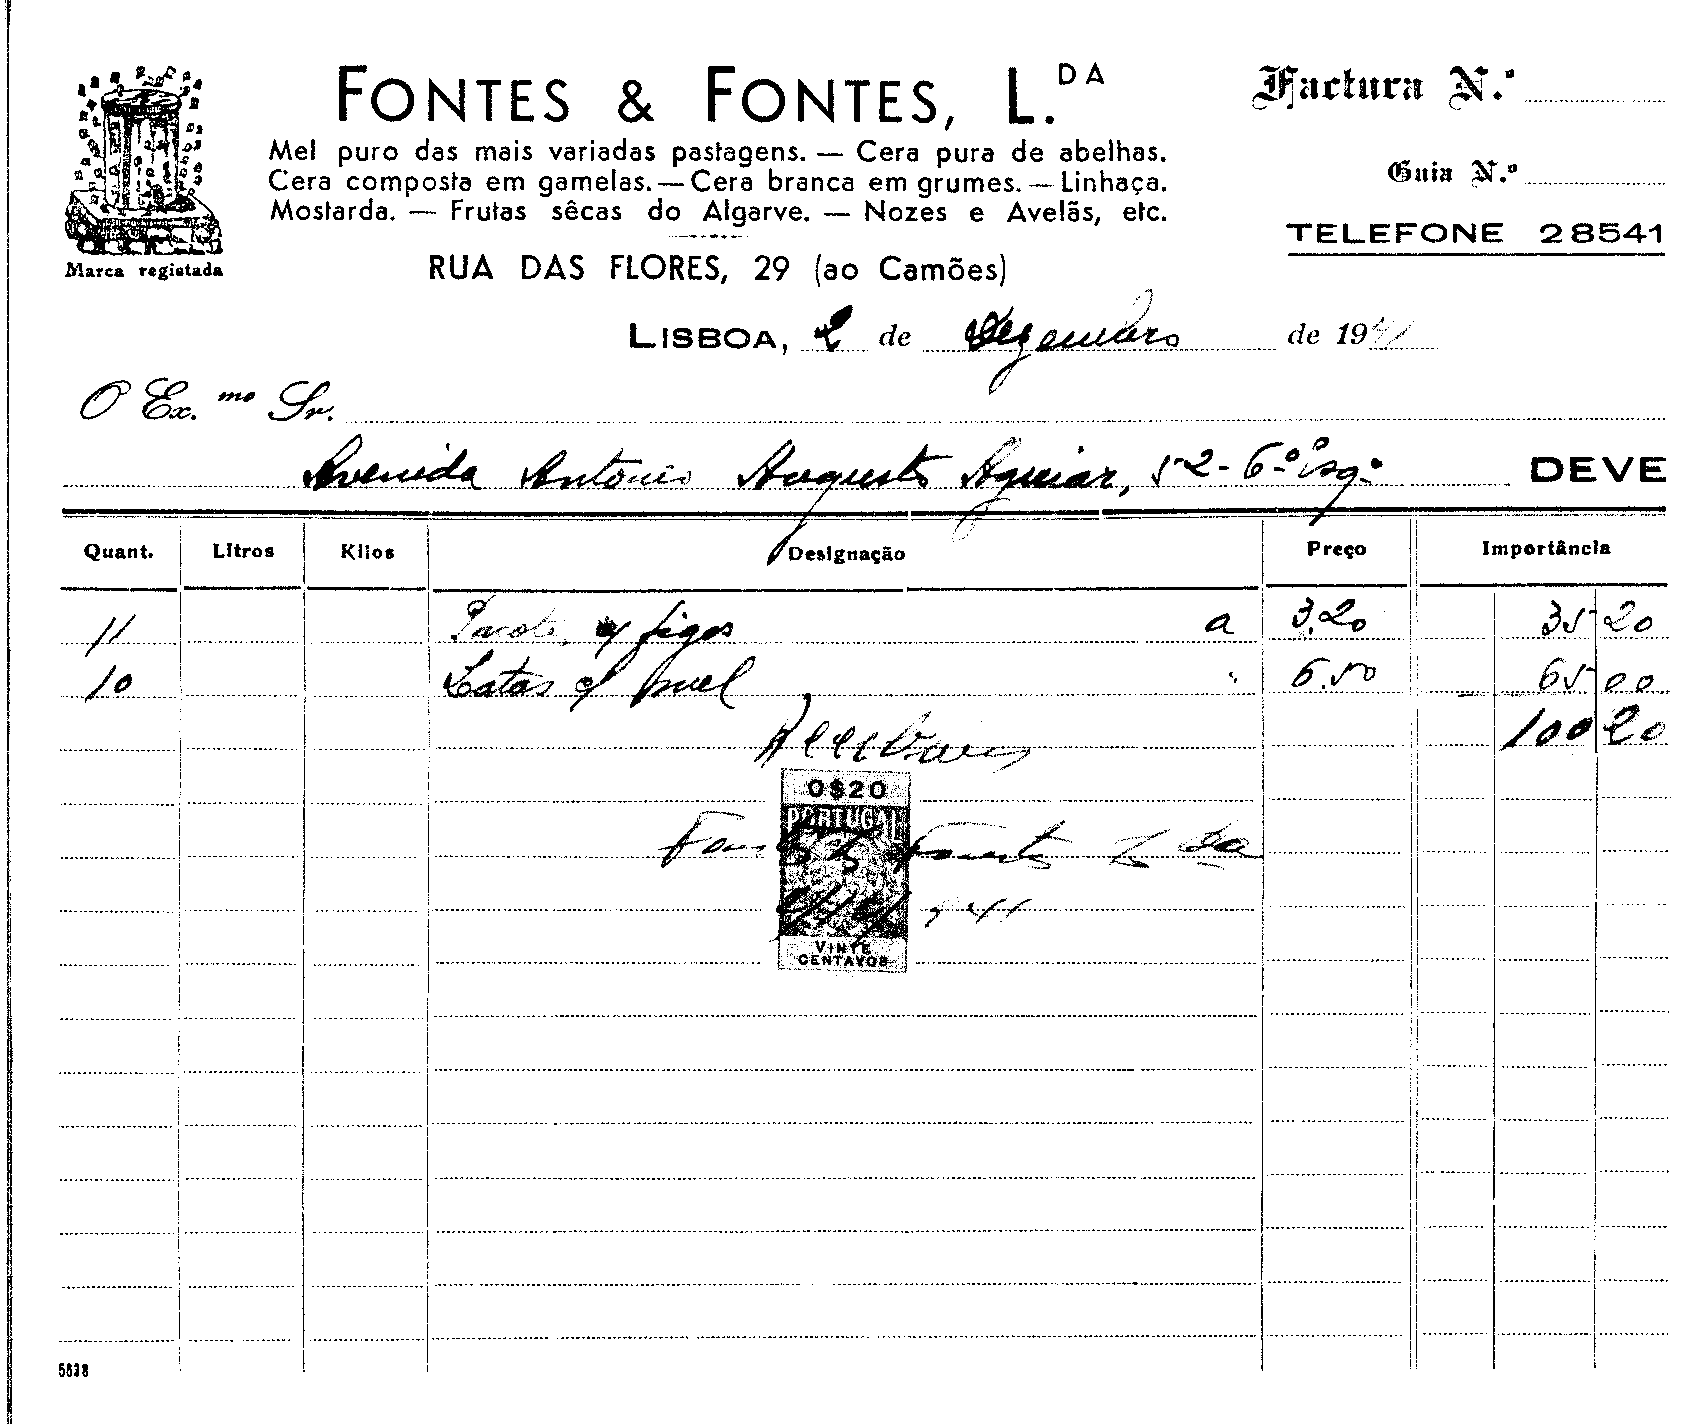 FONTES & FONTES, L.DA
Mel puro das mais variadas pastagens. — Cera pura de abelhas.
Cera composta em gamelas. — Cera branca em grumes. — Linhaça.
Mostarda. — Frutas sêcas do Algarve. — Nozes e Avelãs, etc.
RUA DAS FLORES, 29 (ao Camões)
Marca registada
Factura N.º
Guia N.º
TELEFONE 28541
LISBOA, 2 de Dezembro de 1941
O Ex.mo Sr.
Avenida Antonio Augusto Aguiar, 52-6º esq.º DEVE
Quant. Litros Kilos Designação Preço Importância
11 c/ figos a 3.20 35 20
10 Latas c/ mel " 6.50 65 00
100 20
0$20
PORTUGAL
Fontes & Fontes Lda
2/12/941
VINTE
CENTAVOS
5638